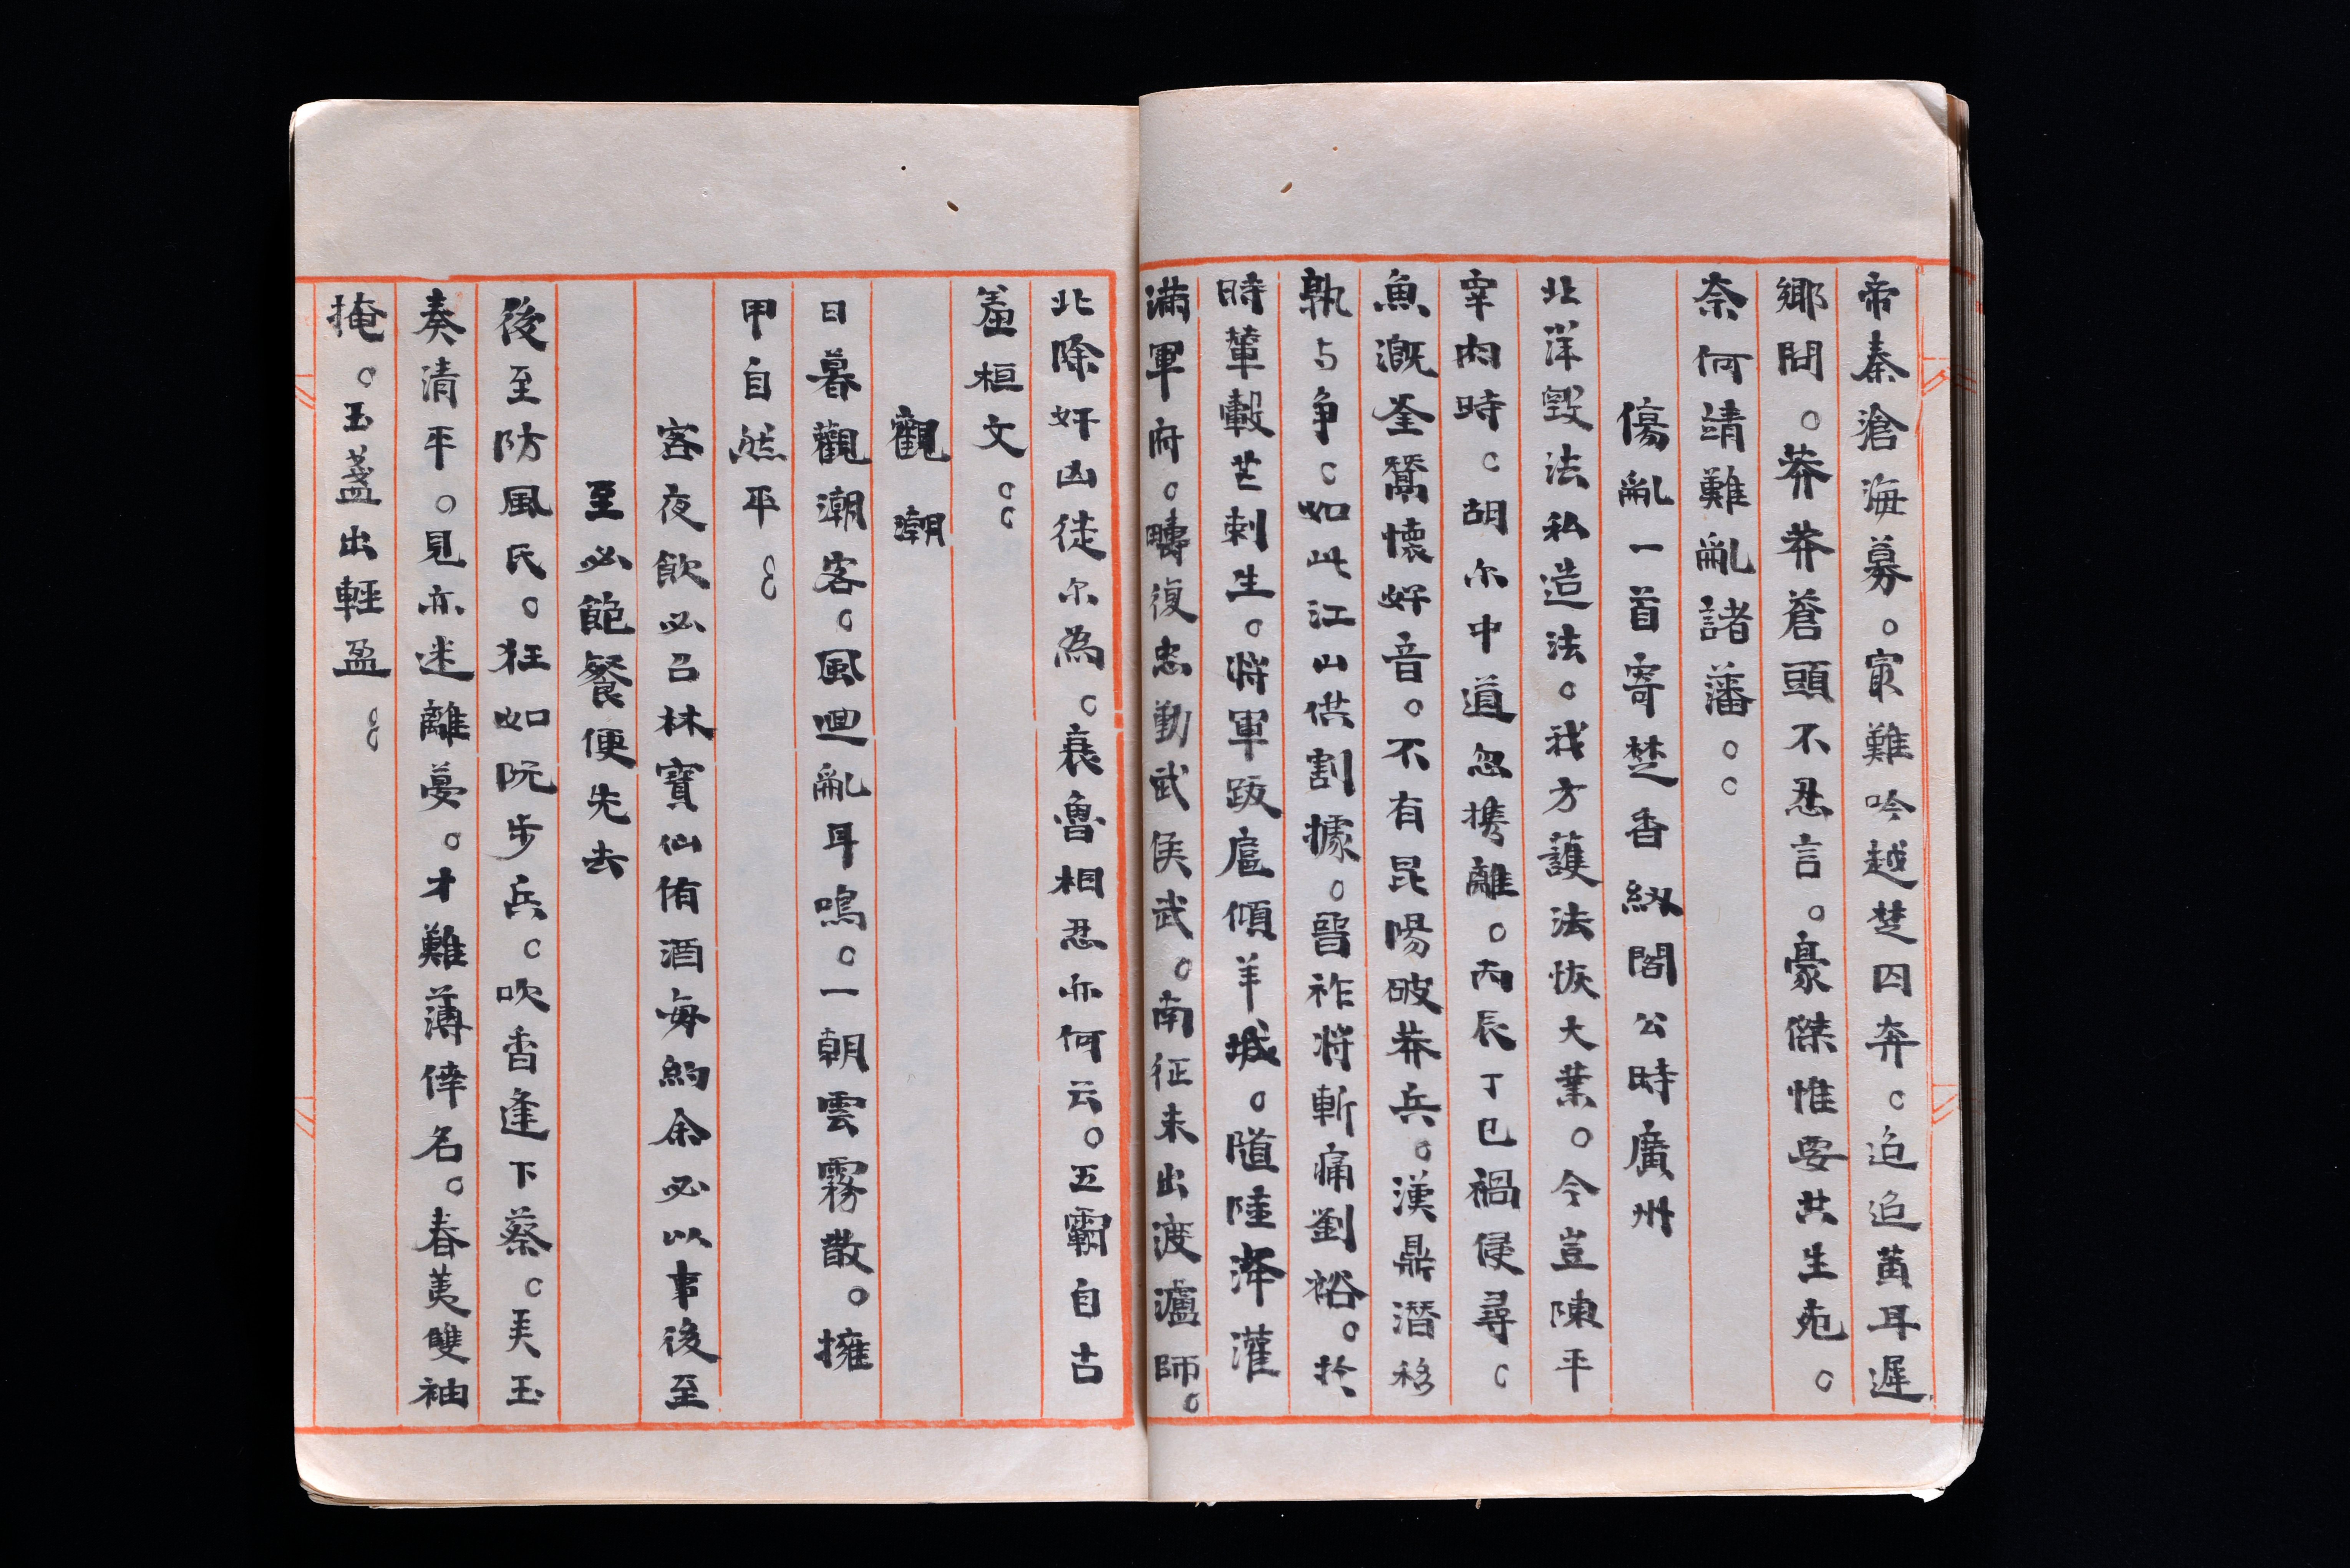 帝秦滄海募。㝡難吟越楚囚奔。迫迫黃耳遲
鄉問。莽莽蒼頭不忍言。豪傑惟要共生死。
奈何靖難亂諸藩。。
傷亂一首寄楚香紉閣公時廣州
北洋毀法私造法。我方護法恢大業。今豈陳平
宰肉時。胡尓中道忽携離。丙辰丁巳禍侵尋。
魚溉釜鬵懷好音。不有昆陽破莽兵。漢鼎潛移
孰与爭。如此江山供割據。晉祚將斬痛劉裕。於
時輦轂芒刺生。將軍跋扈傾羊城。隨陸絳灌
滿軍府。疇復忠勤武侯武。南征未出渡瀘師。
北除奸凶徒尓為。衰魯相忍亦何云。五霸自古
羞桓文。。
觀潮
日暮觀潮客。風迴亂耳鳴。一朝雲霧散。擁
甲自然平。。
客夜飲必召林寶仙侑酒每約余必以事後至
至必飽餐便先去
後至防風氏。狂如阮步兵。吹香逢下蔡。美玉
奏清平。見亦迷離夢。才難薄倖名。春荑雙袖
掩。玉盞出輕盈。。